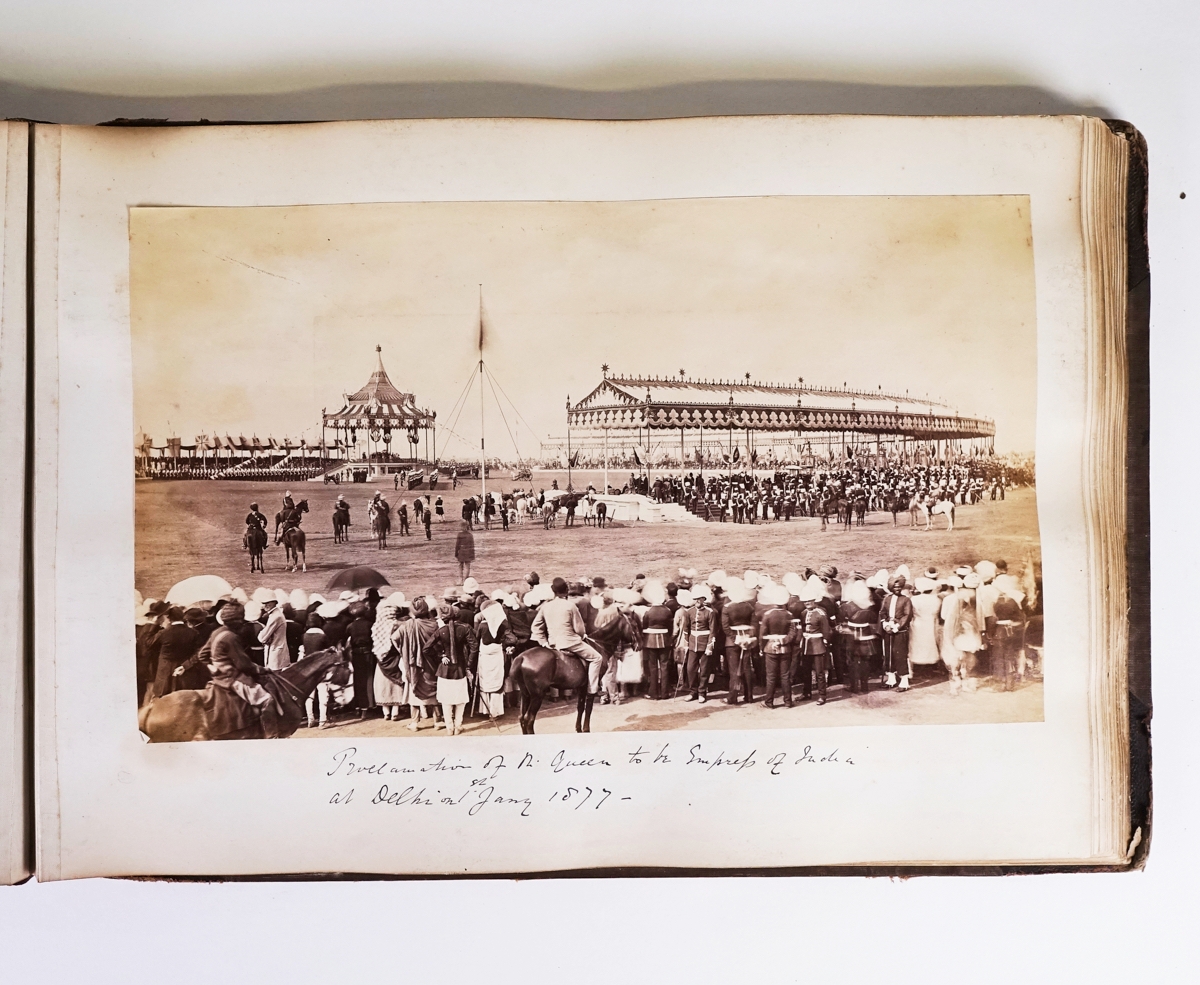 Proclamation of the Queen to be Empress of India
at Delhi on 1st Jany 1877 –